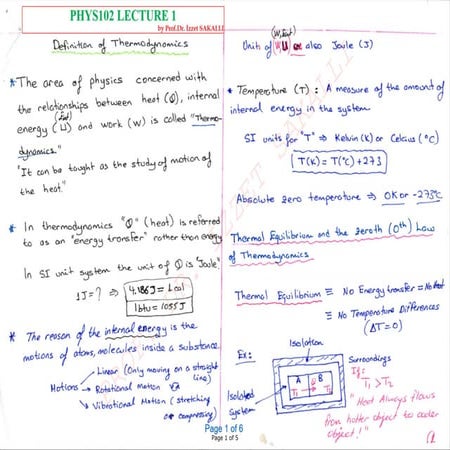 PHYS102 LECTURE 1
by Prof.Dr. Izzet SAKALLI
Definition of Thermodynamics
* The area of physics concerned with
the relationships between heat (Q), internal
energy (U) and work (W) is called "Thermo-
dynamics."
"It can be taught as the study of motion of
the heat."
* In thermodynamics "Q" (heat) is referred
to as an "energy transfer" rather than energy
In SI unit system the unit of Q is "Joule"
1J=? ⇒ 4.186J = 1cal
1btu = 1055J
* The reason of the internal energy is the
motions of atoms, molecules inside a substance.
Motions
Linear (Only moving on a straight
line)
Rotational motion
Vibrational Motion (stretching
or compressing)
Units of W, U are also Joule (J)
* Temperature (T) : A measure of the amount of
internal energy in the system
SI units for "T" ⇒ Kelvin (K) or Celcius (°C)
T(K) = T(°C) + 273
Absolute zero temperature ⇒ 0K or -273°C
Thermal Equilibrium and the zeroth (0th) Law
of Thermodynamics
Thermal Equilibrium ≡ No Energy transfer = No heat
≡ No Temperature Differences
(ΔT=0)
Ex:
Isolation
Surroundings
Isolated
System
A
B
T1
T2
If:
T1 > T2
"Heat Always flows
from hotter object to colder
object!"
Page 1 of 6
Page 1 of 5